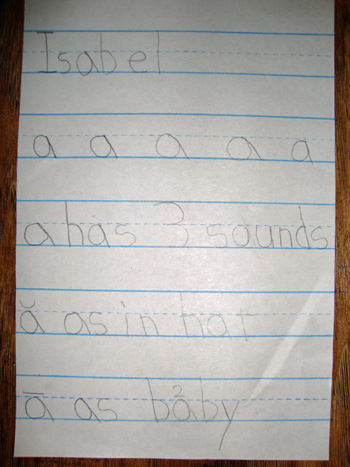 Isabel
a a a a a
a has 3 sounds
ă as in hat
ā as bảby